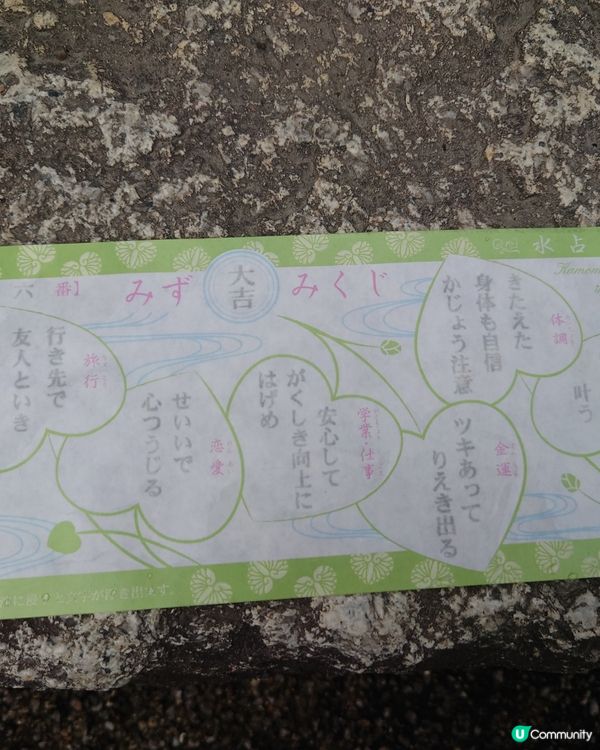 水占
Kamom
みくじ
大吉
みず
六 番】
叶う
体調
きたえた
身体も自信
かじょう注意
金運
ツキあって
りえき出る
学業・仕事
安心して
がくしき向上に
はげめ
恋愛
せいいで
心つうじる
旅行
行き先で
友人といき
U Community